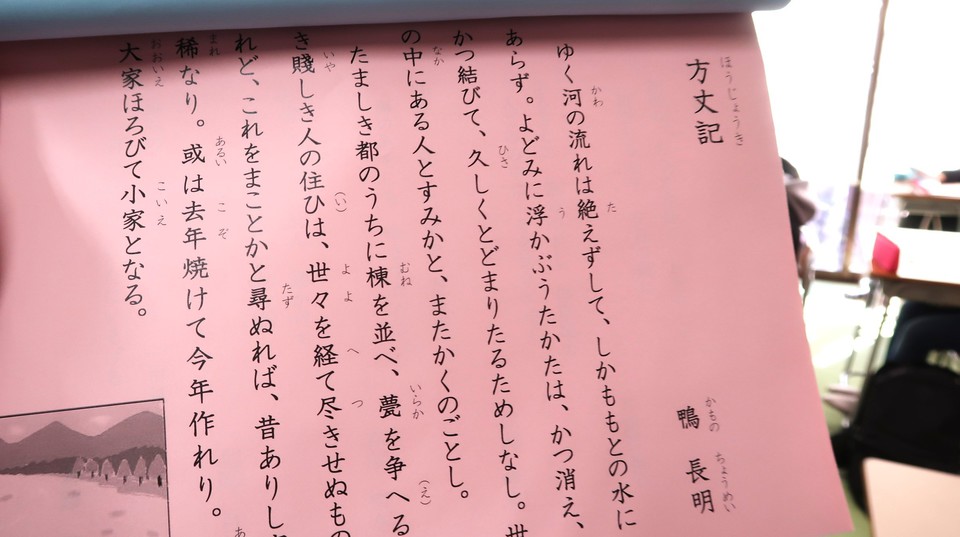 ほうじょうき
方丈記
かもの ちょうめい
鴨 長明
かわ た
ゆく河の流れは絶えずして、しかももとの水に
う
あらず。よどみに浮かぶうたかたは、かつ消え、
ひさ
かつ結びて、久しくとどまりたるためしなし。世
なか
の中にある人とすみかと、またかくのごとし。
むね いらか (え)
たましき都のうちに棟を並べ、甍を争へる
いや (い) よ よ へ つ
き賤しき人の住ひは、世々を経て尽きせぬもの
たず
れど、これをまことかと尋ぬれば、昔ありし
まれ あるい こ ぞ
稀なり。或は去年焼けて今年作れり。
おおいえ こいえ
大家ほろびて小家となる。